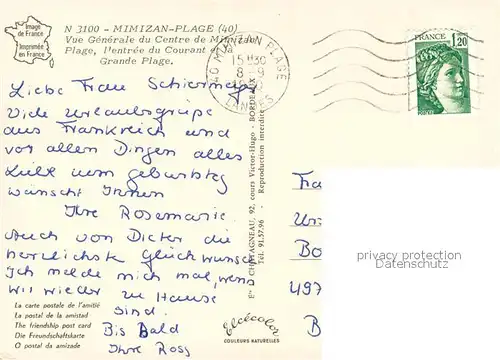 Image
de France
Imprimée
en France
N 3100 - MIMIZAN-PLAGE (40)
Vue Générale du Centre de Mimizan
Plage, l'entrée du Courant et la
Grande Plage.
40 MIMIZAN PLAGE
15H30
8 - 9
LANDES
FRANCE
1,20
Liebe Frau Schiermeyer
Viele Urlaubsgrüße
aus Frankreich und
vor allen Dingen alles
Liebe zum geburtstag
wünscht Ihnen
Ihre Rosemarie
Auch von Dieter die
herzlichste Glückwünsche
Ich melde mich mal, wenn
wir wieder zu Hause
sind.
Bis Bald
Ihre Rosy
La carte postale de l'amitié
La postal de la amistad
The friendship post card
Die Freundschaftskarte
O postal da amizade
Ets CHATAGNEAU, 92, cours Victor-Hugo - BORDEAUX
Tel. 91.57.96 - Reproduction interdite
Elcécolor
COULEURS NATURELLES
Fra
Bo
497
B
privacy protection
Datenschutz